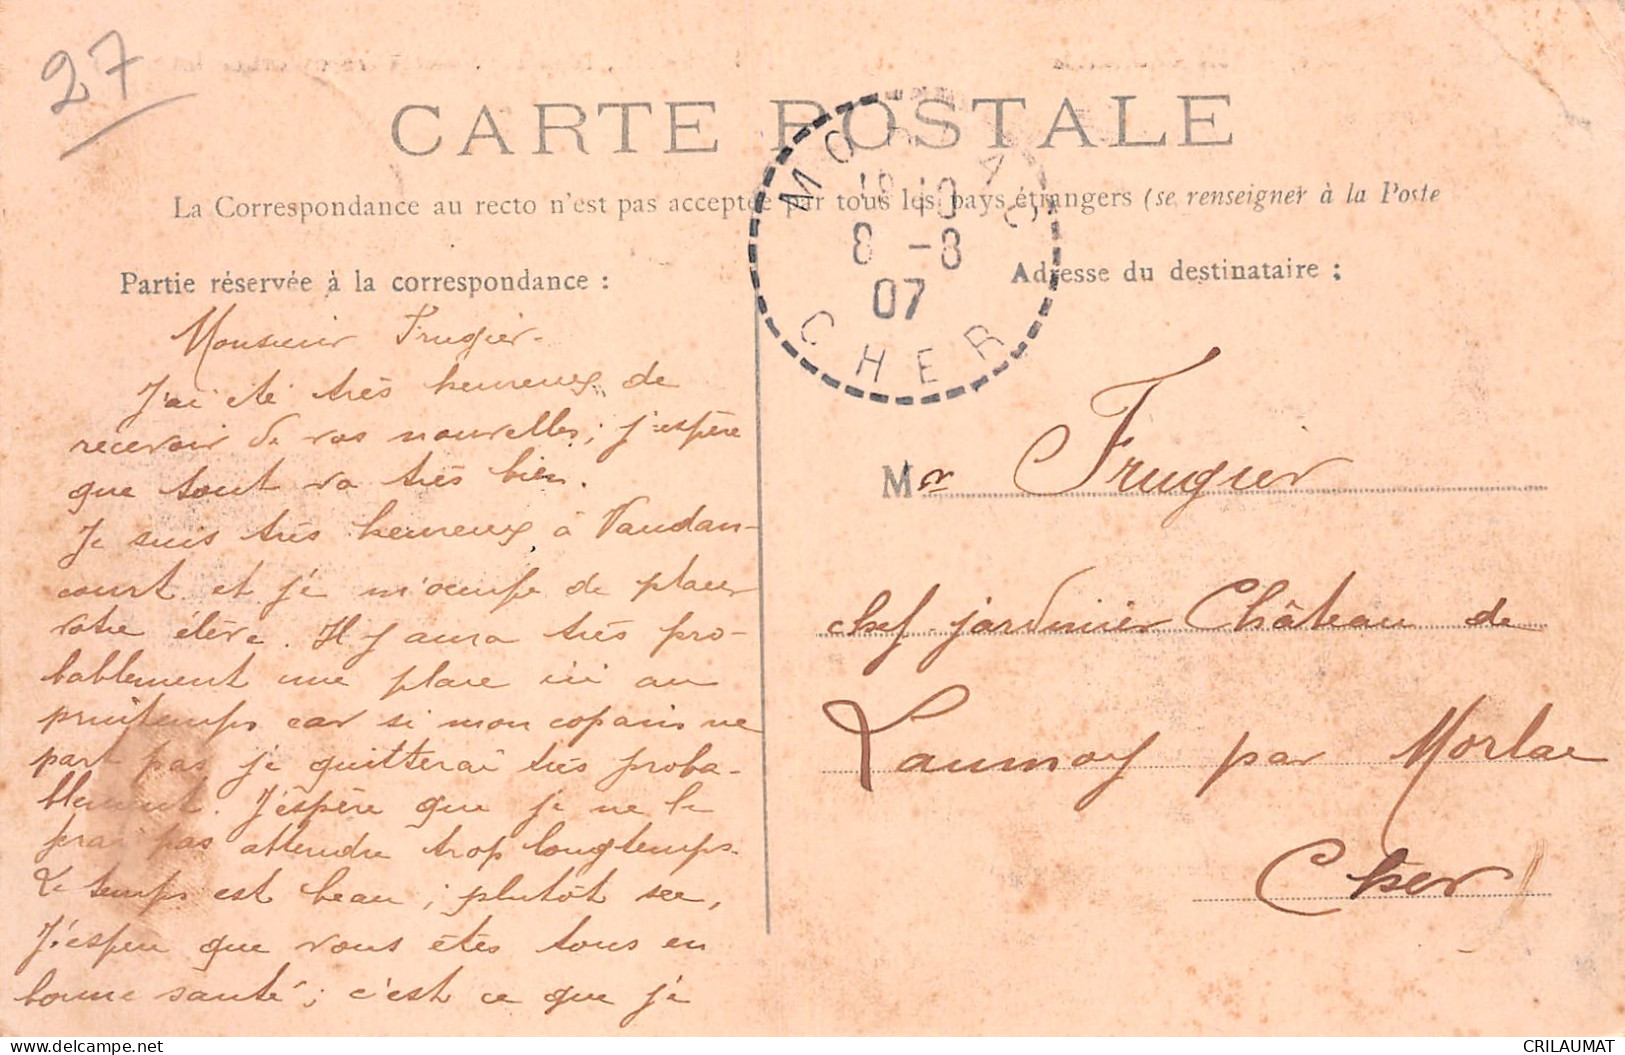 27
CARTE POSTALE
La Correspondance au recto n'est pas acceptée par tous les pays étrangers (se renseigner à la Poste
MORLAC
18 10
8 -8
07
CHER
Partie réservée à la correspondance :
Monsieur Frugier.
J'ai été très heureux de
recevoir de vos nouvelles; j'espère
que tout va très bien.
Je suis très heureux à Vaudan-
court et je m'occupe de placer
votre élève. Il y aura très pro-
bablement une place ici au
printemps car si mon copain ne
part pas je quitterai très proba-
blement. J'espère que je ne le
ferai pas attendre trop longtemps.
Le temps est beau; plutôt sec,
J'espère que vous êtes tous en
bonne santé; c'est ce que je
Adresse du destinataire :
Mr Frugier
chef jardinier Château de
Launoy par Morlac
Cher
delcampe.net
CRILAUMAT